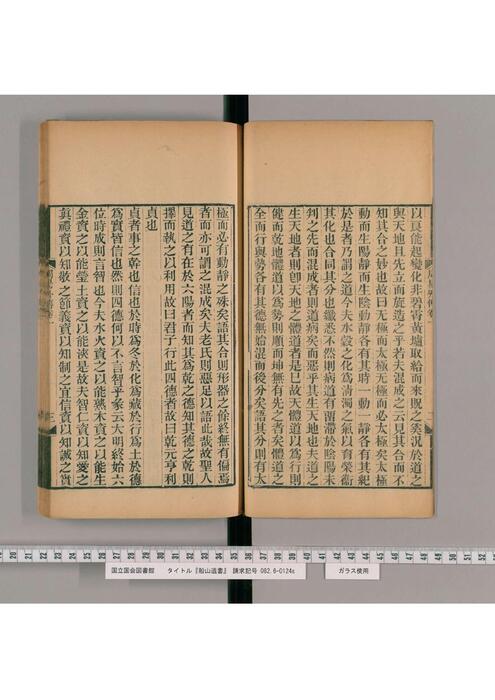 以貞能起變化非碧霄黃壚取給而來貺之奚況於道之
與天地且先立而旋造之乎若夫混成之云見其合而不
知其合之妙也故曰无極而太極无極而必太極矣太極
動而生陽靜而生陰動靜各有其時一動一靜各有其紀
於是者乃謂之道今夫水穀之化為清濁之氣以育榮衛
其化也合同其分也纖悉不然則病道有留滯於陰陽未
判之先而混成者則道病矣而惡乎其生天地也夫道之
生天地者則卽天地之體道者是已故天體道以為行則
健而乾地體道以為勢則順而坤無有先之者矣體道之
全而行與勢各有其德無始混而後分矣語其分則有太
極而必有動靜之殊矣語其合則形器之餘終無有偏焉
者而亦可謂之混成矣夫老氏則惡足以語此哉故聖人
見道之有在於六陽者而知其為乾之德知其德之乾則
擇而執之以利用故曰君子行此四德者故曰乾元亨利
貞也
貞者事之幹也信也於時為冬於化為藏於行為土於德
為實皆信也然則四德何以不言智乎彖云大明終始六
位時成則言智也今夫水火資之以能熱木資之以能生
金資之以能瑩土資之以能浹是故夫智仁資以知愛之
真禮資以知敬之節義資以知制之宜信資以知誠之實
三
國立国会図書館 タイトル『船山遺書』 請求記号 082.6-O124s
ガラス使用